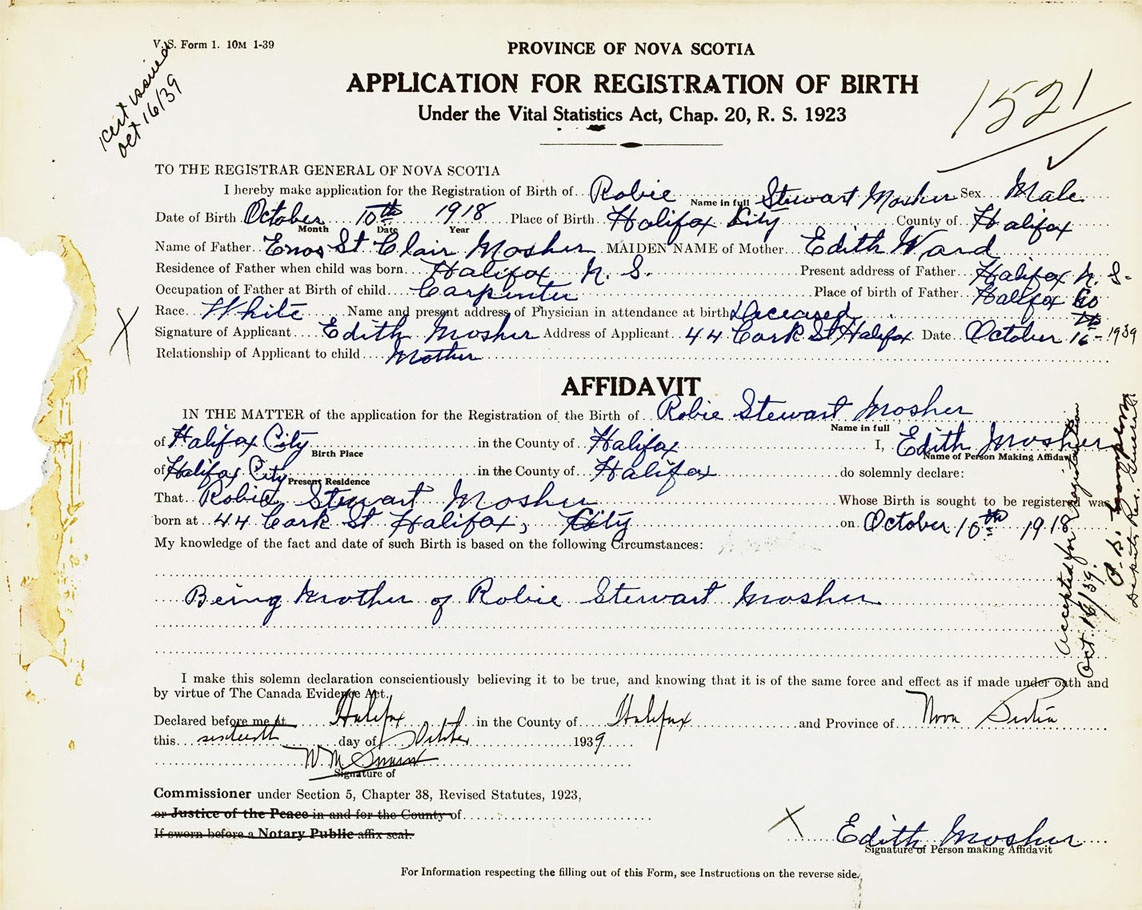 V. S. Form 1. 10M 1-39
Cert issued
Oct 16/39
PROVINCE OF NOVA SCOTIA
APPLICATION FOR REGISTRATION OF BIRTH
Under the Vital Statistics Act, Chap. 20, R. S. 1923
1521
TO THE REGISTRAR GENERAL OF NOVA SCOTIA
I hereby make application for the Registration of Birth of Robie Stewart Mosher Sex Male
Name in full
Date of Birth October 10th 1918 Place of Birth Halifax City County of Halifax
Month Date Year
Name of Father Enos St. Clair Mosher MAIDEN NAME of Mother Edith Ward
Residence of Father when child was born Halifax N. S. Present address of Father Halifax N. S.
Occupation of Father at Birth of child Carpenter Place of birth of Father Halifax Co
Race White Name and present address of Physician in attendance at birth Deceased
Signature of Applicant Edith Mosher Address of Applicant 44 Cork St Halifax Date October 16th 1939
Relationship of Applicant to child Mother
AFFIDAVIT
IN THE MATTER of the application for the Registration of the Birth of Robie Stewart Mosher
Name in full
of Halifax City in the County of Halifax I, Edith Mosher
Birth Place Name of Person Making Affidavit
of Halifax City in the County of Halifax do solemnly declare:
Present Residence
That Robie Stewart Mosher Whose Birth is sought to be registered was
born at 44 Cork St Halifax, City on October 10th 1918
My knowledge of the fact and date of such Birth is based on the following Circumstances:
Being Mother of Robie Stewart Mosher
Accepted for registration
Oct. 16/39.
Deputy Reg. General
I make this solemn declaration conscientiously believing it to be true, and knowing that it is of the same force and effect as if made under oath and
by virtue of The Canada Evidence Act.
Declared before me at Halifax in the County of Halifax and Province of Nova Scotia
this sixteenth day of October 1939
Signature of
Commissioner under Section 5, Chapter 38, Revised Statutes, 1923,
or Justice of the Peace in and for the County of
If sworn before a Notary Public affix seal.
X Edith Mosher
Signature of Person making Affidavit
For Information respecting the filling out of this Form, see Instructions on the reverse side.